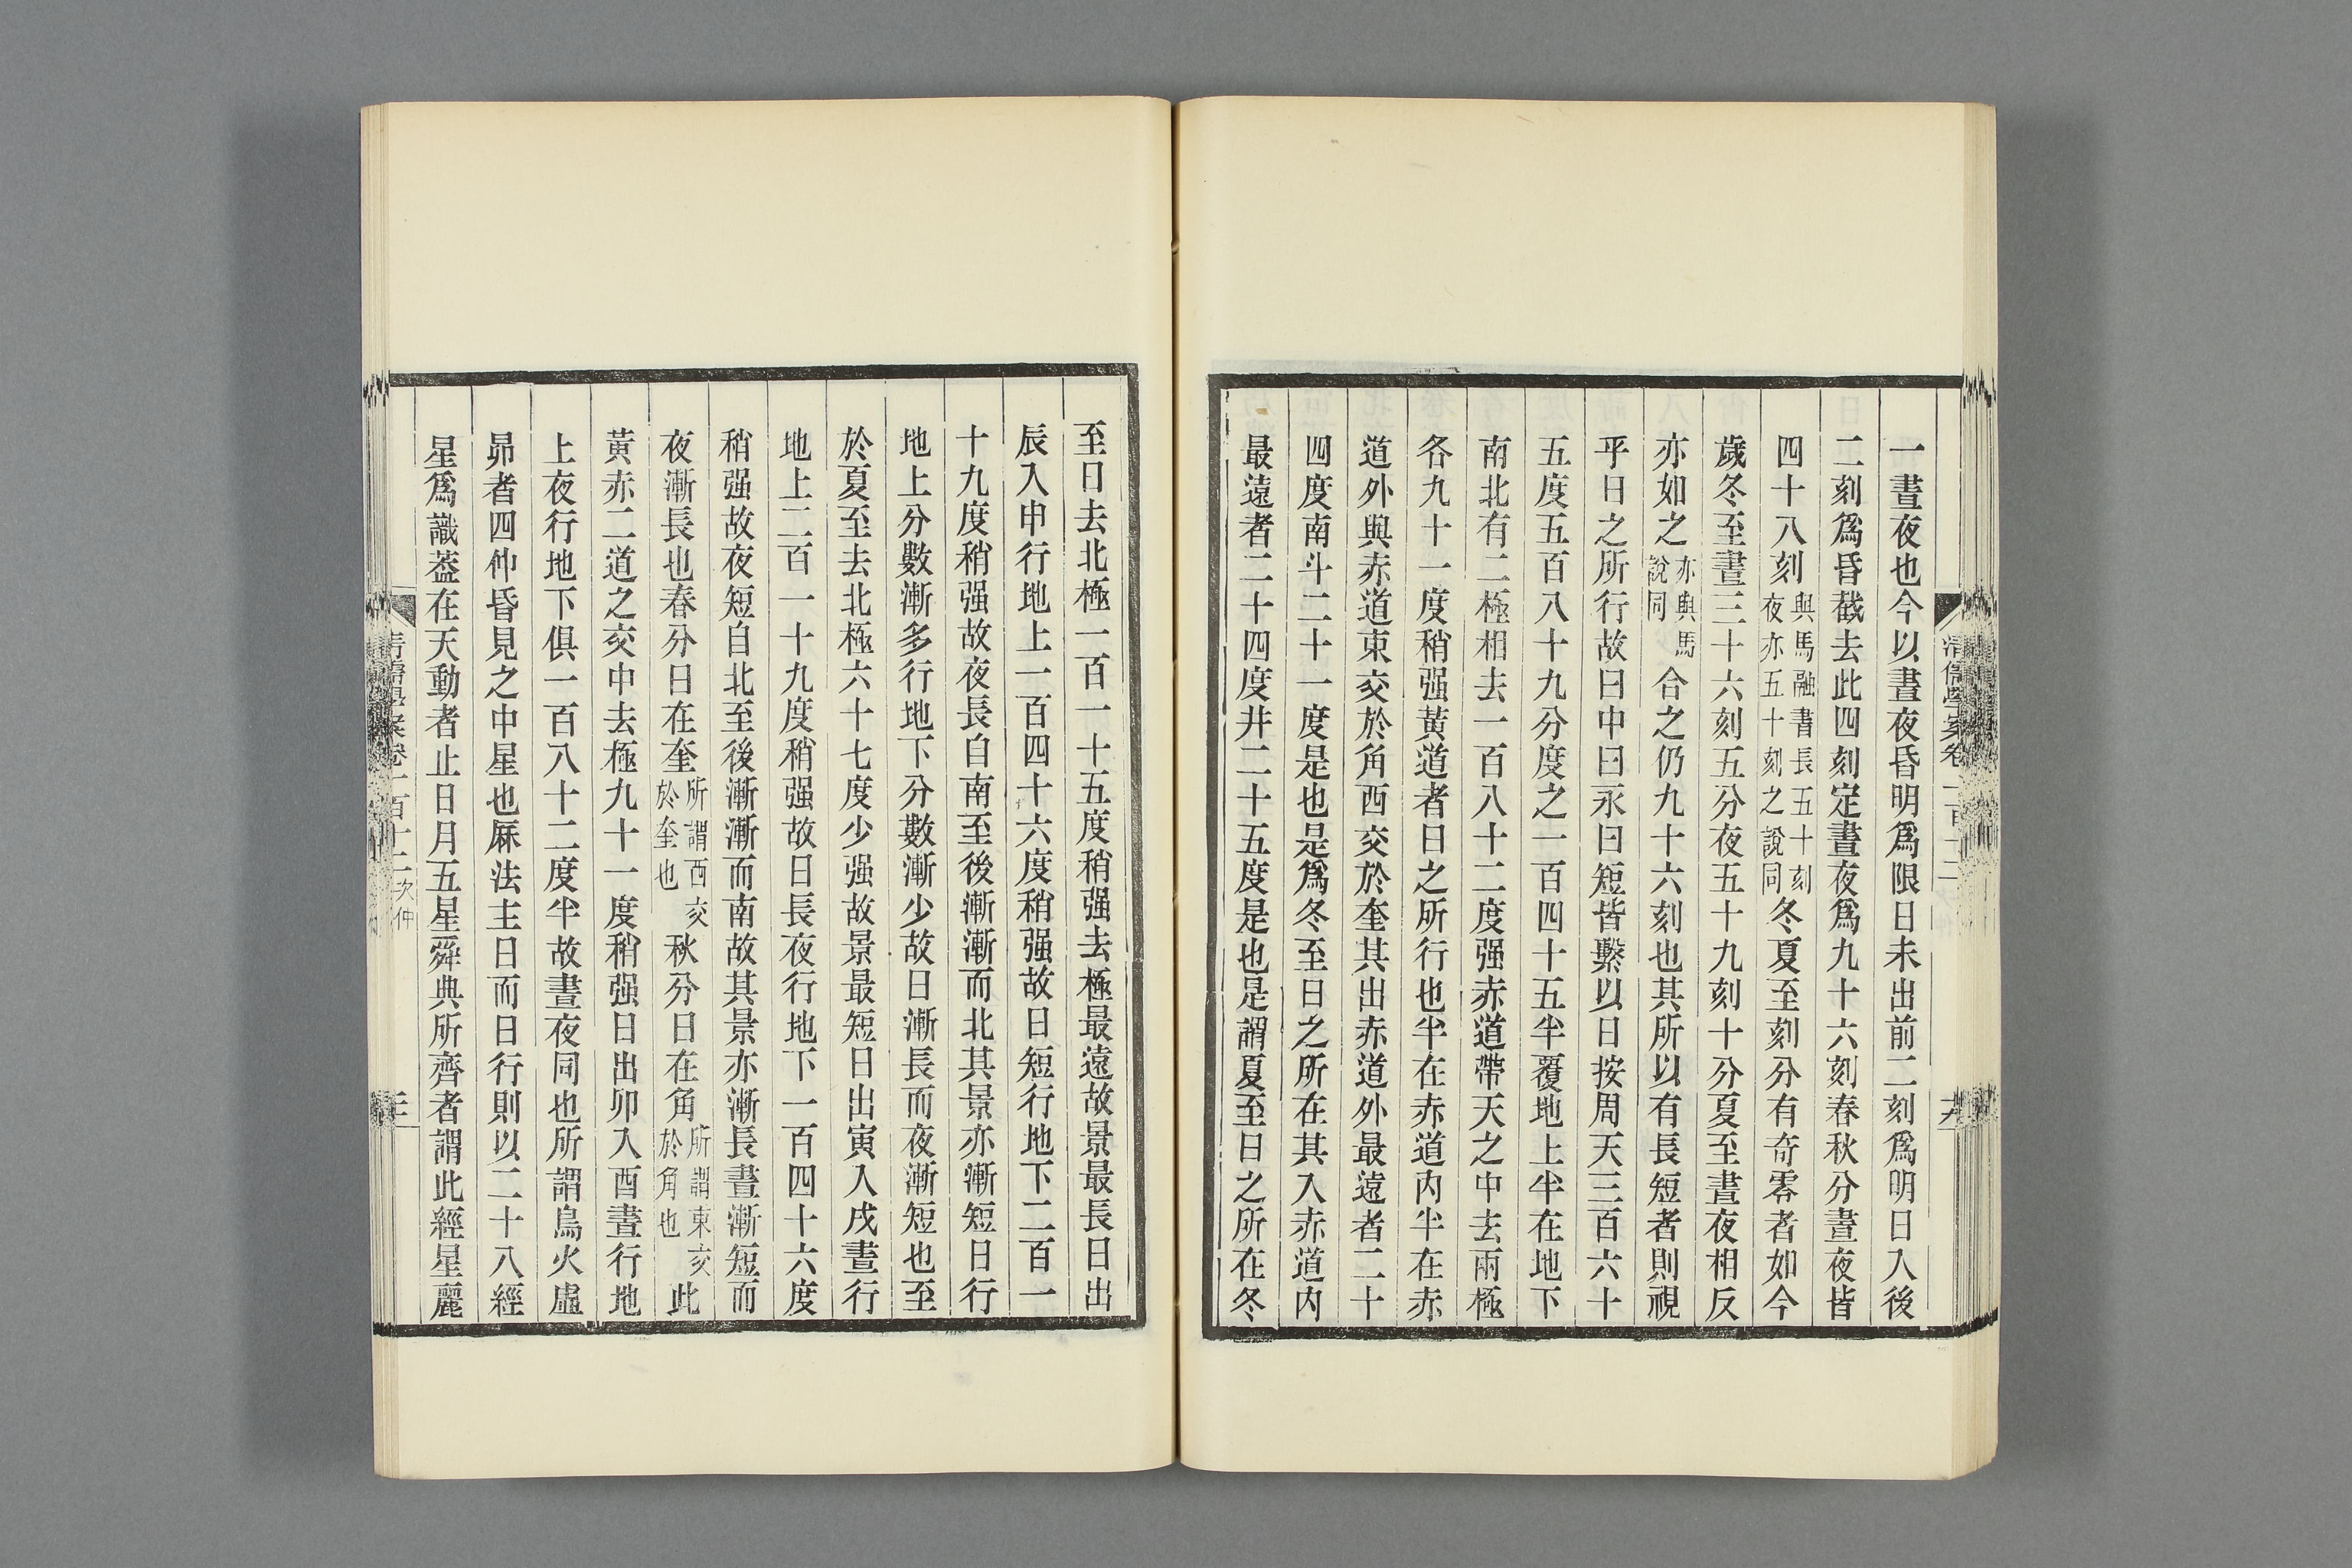 一晝夜也今以晝夜昏明爲限日未出前二刻爲明日入後
二刻爲昏截去此四刻定晝夜爲九十六刻春秋分晝夜皆
四十八刻與馬融書長五十刻夜亦五十刻之說同冬夏至刻分有奇零者如今
歲冬至晝三十六刻五分夜五十九刻十分夏至晝夜相反
亦如之亦與馬說同合之仍九十六刻也其所以有長短者則視
乎日之所行故日中曰永曰短皆繫以日按周天三百六十
五度五百八十九分度之一百四十五半覆地上半在地下
南北有二極相去一百八十二度强赤道帶天之中去兩極
各九十一度稍强黃道者日之所行也半在赤道內半在赤
道外與赤道東交於角西交於奎其出赤道外最遠者二十
四度南斗二十一度是也是爲冬至日之所在其入赤道內
最遠者二十四度井二十五度是也是謂夏至日之所在冬
清儒學案卷
至日去北極一百一十五度稍强去極最遠故景最長日出
辰入申行地上一百四十六度稍强故日短行地下二百一
十九度稍强故夜長自南至後漸漸而北其景亦漸短日行
地上分數漸多行地下分數漸少故日漸長而夜漸短也至
於夏至去北極六十七度少强故景最短日出寅入戌晝行
地上二百一十九度稍强故日長夜行地下一百四十六度
稍强故夜短自北至後漸漸而南故其景亦漸長晝漸短而
夜漸長也春分日在奎所謂西交於奎也秋分日在角所謂東交於角也此
黃赤二道之交中去極九十一度稍强日出卯入酉晝行地
上夜行地下俱一百八十二度半故晝夜同也所謂鳥火虛
昴者四仲昏見之中星也厤法主日而日行則以二十八經
星爲識葢在天動者止日月五星舜典所齊者謂此經星麗